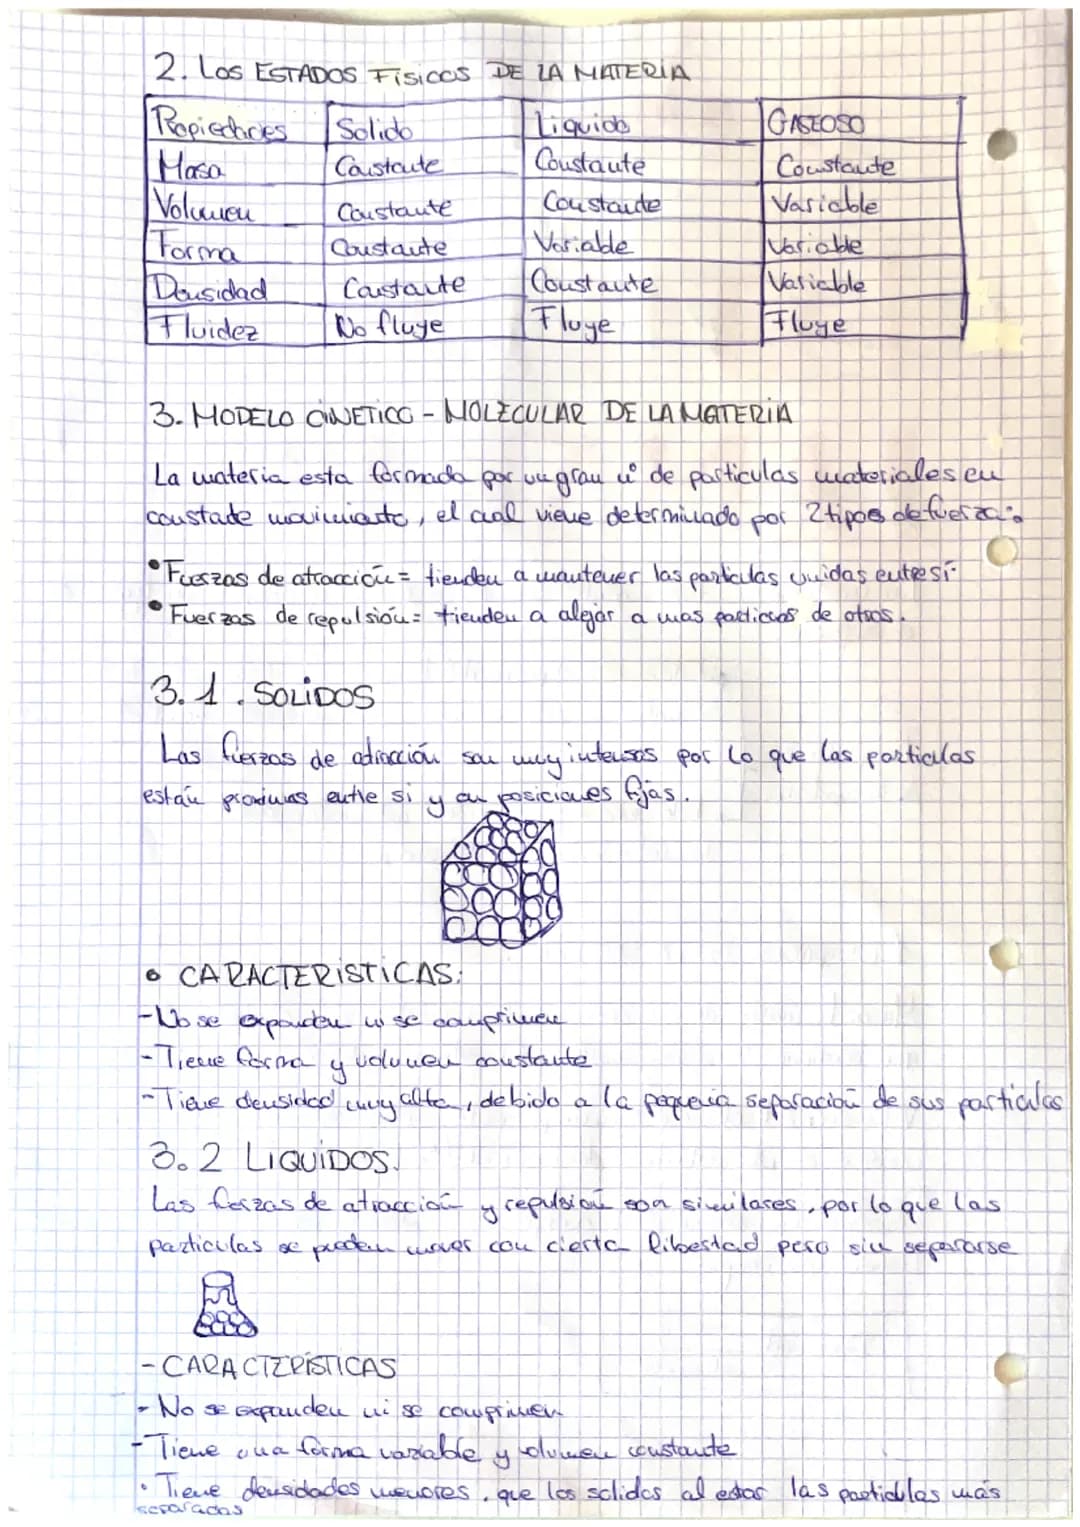 2. Los ESTADOS Físicos DE LA MATERIA
Propiedades Solido Liquido GASEOSO
Masa Constante Constante Constante
Volumen Constante Constante Variable
Forma Constante Variable Variable
Densidad Constante Constante Variable
Fluidez No fluye Fluye Fluye
3. MODELO CINETICO - MOLECULAR DE LA MATERIA
La materia esta formada por un gran nº de particulas materiales en
constante movimiento, el cual viene determinado por 2 tipos de fuerza:
• Fuerzas de atracción = tienden a mantener las particulas unidas entre sí.
• Fuerzas de repulsión = tienden a alejar a unas particulas de otras.
3.1. SOLIDOS
Las fuerzas de atracción son muy intensas por lo que las particulas
están proximas entre si y en posiciones fijas.
• CARACTERISTICAS:
- No se expanden ni se comprimen
- Tiene forma y volumen constante
- Tiene densidad muy alta, debido a la pequeña separación de sus particulas
3.2 LIQUIDOS.
Las fuerzas de atracción y repulsión son similares, por lo que las
particulas se pueden mover con cierta libertad pero sin separarse
- CARACTERISTICAS
- No se expanden ni se comprimen
- Tiene una forma variable y volumen constante
• Tiene densidades menores, que los solidos al estar las particulas más
separadas